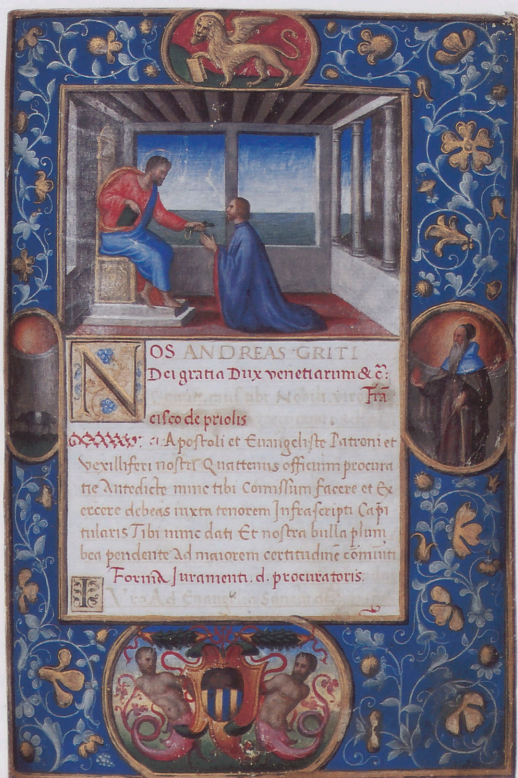 NOS ANDREAS GRITI
Dei gratia Dux venetiarum & c̄:
Frā
cisco de priolis
Apostoli et Euangeliste Patroni et
vexilliferi nostri Quattenus officium procura
tie Antedicte nunc tibi Comissum facere et Ex
ercere debeas iuxta tenorem Infrascripti Capi
tularis Tibi nunc dati Et nostra bulla plum
bea pendente Ad maiorem certitudinē cōmuniti
Forma Iuramenti. d. procuratoris.